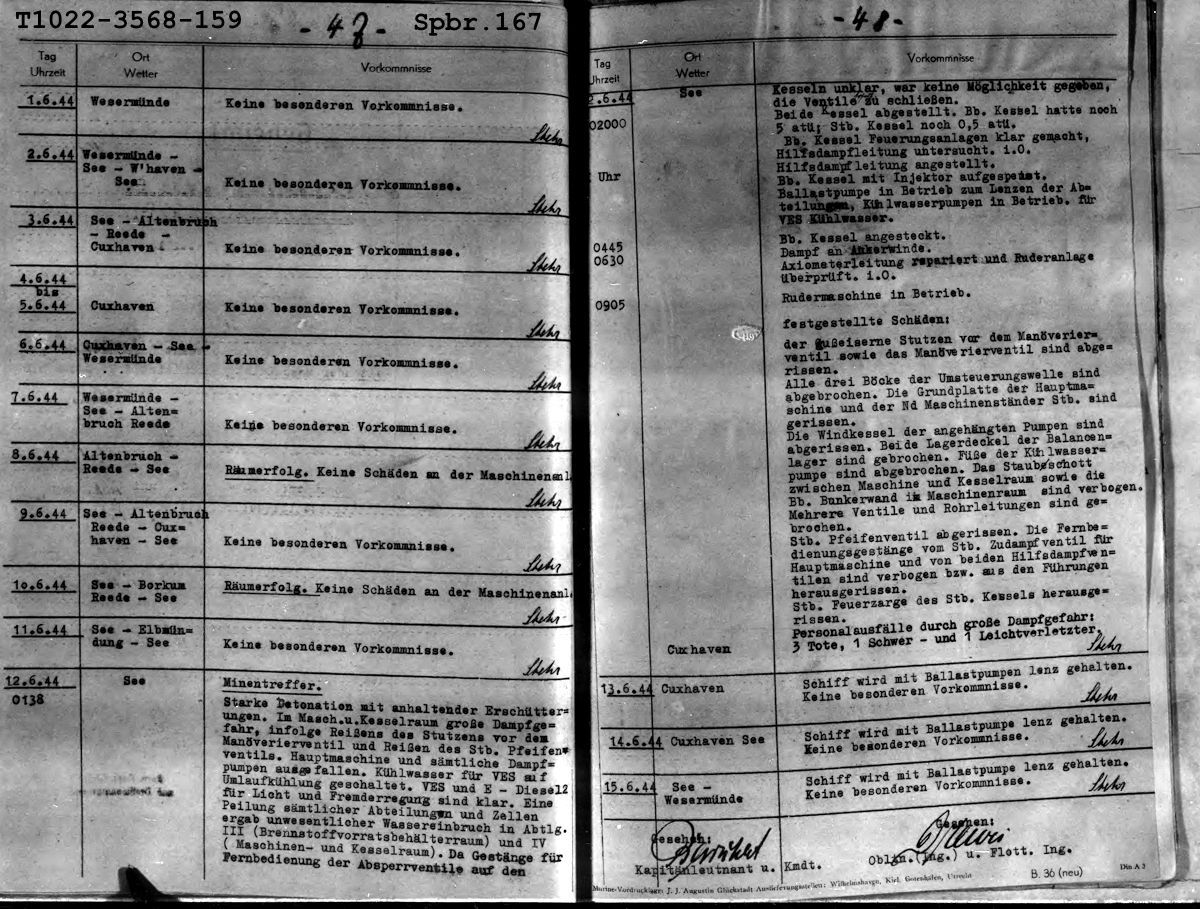 T1022-3568-159
- 47 -
Spbr.167
Tag
Uhrzeit
Ort
Wetter
Vorkommnisse
1.6.44 Wesermünde Keine besonderen Vorkommnisse.
Stehr
2.6.44 Wesermünde -
See - W'haven -
See Keine besonderen Vorkommnisse.
Stehr
3.6.44 See - Altenbruch
- Reede -
Cuxhaven - Keine besonderen Vorkommnisse.
Stehr
4.6.44
bis
5.6.44 Cuxhaven Keine besonderen Vorkommnisse.
Stehr
6.6.44 Cuxhaven - See -
Wesermünde Keine besonderen Vorkommnisse.
Stehr
7.6.44 Wesermünde -
See - Alten=
bruch Reede Keine besonderen Vorkommnisse.
Stehr
8.6.44 Altenbruch -
Reede - See Räumerfolg. Keine Schäden an der Maschinenanl.
Stehr
9.6.44 See - Altenbruch
Reede - Cux=
haven - See Keine besonderen Vorkommnisse.
Stehr
10.6.44 See - Borkum
Reede - See Räumerfolg. Keine Schäden an der Maschinenanl.
Stehr
11.6.44 See - Elbmün=
dung - See Keine besonderen Vorkommnisse.
Stehr
12.6.44 See Minentreffer.
0138 Starke Detonation mit anhaltender Erschütter=
ungen. Im Masch.u.Kesselraum große Dampfge=
fahr, infolge Reißens des Stutzens vor dem
Manöverierventil und Reißen des Stb. Pfeifen=
ventils. Hauptmaschine und sämtliche Dampf=
pumpen ausgefallen. Kühlwasser für VES auf
Umlaufkühlung geschaltet. VES und E - Diesel2
für Licht und Fremderregung sind klar. Eine
Peilung sämtlicher Abteilungen und Zellen
ergab unwesentlicher Wassereinbruch in Abtlg.
III (Brennstoffvorratsbehälterraum) und IV
( Maschinen- und Kesselraum). Da Gestänge für
Fernbedienung der Absperrventile auf den
- 48 -
Tag
Uhrzeit
Ort
Wetter
Vorkommnisse
2.6.44 See Kesseln unklar, war keine Möglichkeit gegeben,
die Ventile zu schließen.
Beide Kessel abgestellt. Bb. Kessel hatte noch
02000 5 atü; Stb. Kessel noch 0,5 atü.
Bb. Kessel Feuerungsanlagen klar gemacht,
Hilfsdampfleitung untersucht. i.O.
Hilfsdampfleitung angestellt.
Uhr Bb. Kessel mit Injektor aufgespeist.
Ballastpumpe in Betrieb zum Lenzen der Ab=
teilungen, Kühlwasserpumpen in Betrieb. für
VES Kühlwasser.
Bb. Kessel angesteckt.
0445 Dampf an Ankerwinde.
0630 Axiometerleitung repariert und Ruderanlage
überprüft. i.O.
0905 Rudermaschine in Betrieb.
festgestellte Schäden:
der gußeiserne Stutzen vor dem Manöverier=
ventil sowie das Manöverierventil sind abge=
rissen.
Alle drei Böcke der Umsteuerungswelle sind
abgebrochen. Die Grundplatte der Hauptma=
schine und der Nd Maschinenständer Stb. sind
gerissen.
Die Windkessel der angehängten Pumpen sind
abgerissen. Beide Lagerdeckel der Balancen=
lager sind gebrochen. Füße der Kühlwasser=
pumpe sind abgebrochen. Das Staubschott
zwischen Maschine und Kesselraum sowie die
Bb. Bunkerwand im Maschinenraum sind verbogen.
Mehrere Ventile und Rohrleitungen sind ge=
brochen.
Stb. Pfeifenventil abgerissen. Die Fernbe=
dienungsgestänge vom Stb. Zudampfventil für
Hauptmaschine und von beiden Hilfsdampfven=
tilen sind verbogen bzw. aus den Führungen
herausgerissen.
Stb. Feuerzarge des Stb. Kessels herausge=
rissen.
Personalausfälle durch große Dampfgefahr:
Cuxhaven 3 Tote, 1 Schwer - und 1 Leichtverletzter.
Stehr
13.6.44 Cuxhaven Schiff wird mit Ballastpumpe lenz gehalten.
Keine besonderen Vorkommnisse.
Stehr
14.6.44 Cuxhaven See Schiff wird mit Ballastpumpe lenz gehalten.
Keine besonderen Vorkommnisse.
Stehr
15.6.44 See -
Wesermünde Schiff wird mit Ballastpumpe lenz gehalten.
Keine besonderen Vorkommnisse.
Stehr
Gesehen: Gesehen:
Kapitänleutnant u. Kmdt. Oblgn.(Ing.) u. Flott. Ing.
Marine-Vordrucklager J. J. Augustin Glückstadt Auslieferungsstellen: Wilhelmshaven, Kiel, Gotenhafen, Utrecht
B. 36 (neu) Din A 3